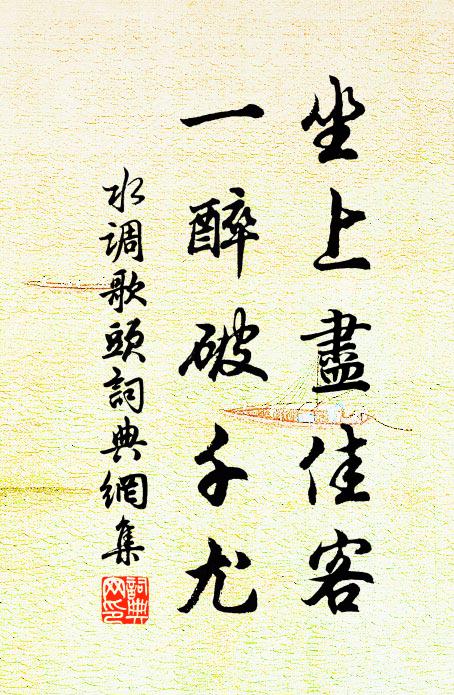 坐上盡佳客
一醉破千尤
水调歌頭詞典網集
詞典網印